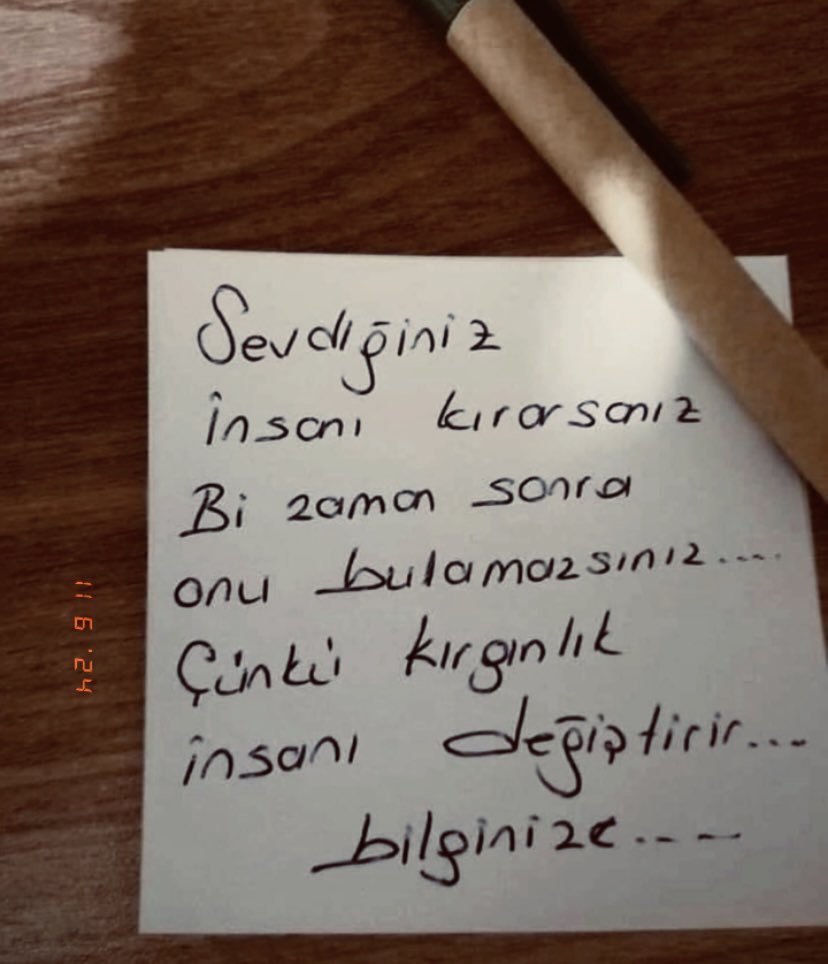 Sevdiğiniz
insanı kırarsanız
Bi zaman sonra
onu bulamazsınız....
Çünkü kırgınlık
insanı değiştirir...
bilginize....
11 6 '24